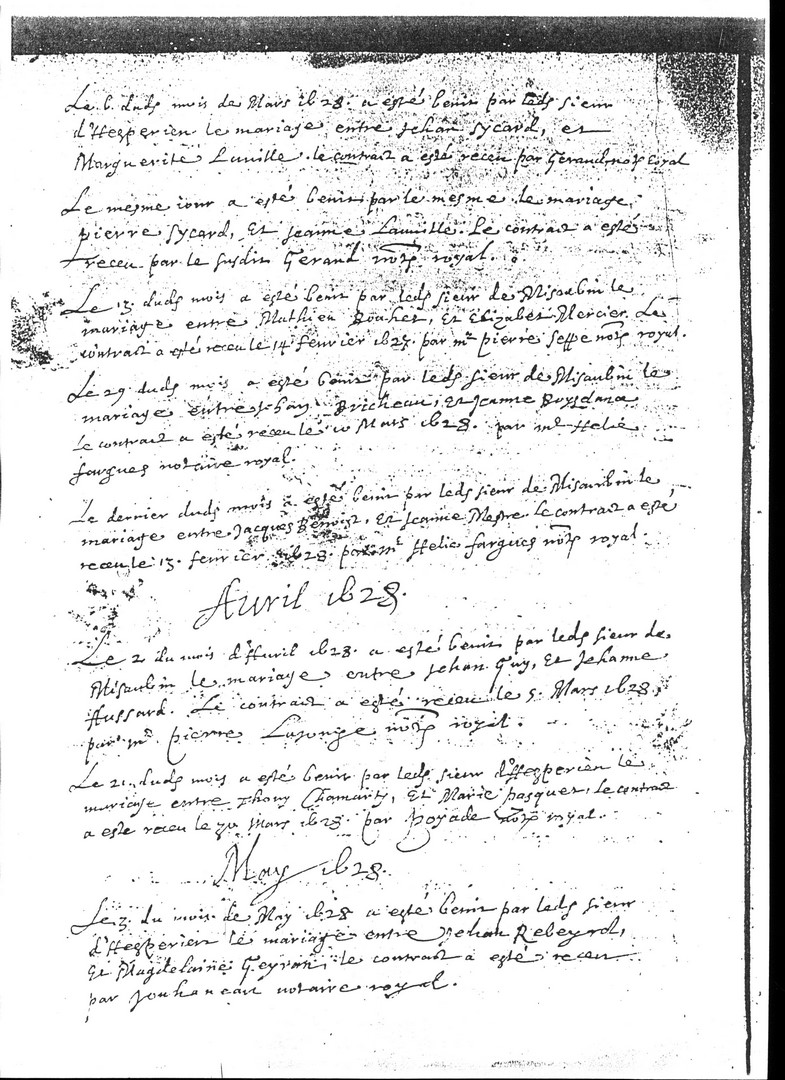 Le 6. dudt mois de Mars 1628. a esté benit par ledt sieur
d'Hesperien le mariage entre Jehan Sycard, et
Marguerite Lauille. le contract a esté receu par Geraud, notre royal
Le mesme iour a esté benit par le mesme le mariage,
pierre Sycard, Et Jeanne Lauille. Le contract a esté
receu par le susdit Geraud notre royal.
Le 13. dudt mois a esté benit par ledt sieur de Misaubin le
mariage entre Mathieu Bouhet, Et Elizabet Mercier. Le
contract a esté receu le 14 feurier 1628. par mr pierre notre royal.
Le 29 dudt mois a esté benit par ledt sieur de Misaubin le
mariage entre Jehan Bricheau, Et Jeanne
Le contract a esté receu le 10 Mars 1628. par mr Helie
fargues notaire royal.
Le dernier dudt mois a esté benit par ledt sieur de Misaubin le
mariage entre Jacques Benoist, Et Jeanne Mestre. Le contract a esté
receu le 13. feurier 1628. par mr Helie fargues notre royal.
Auril 1628.
Le 2 du mois d'Auril 1628. a esté benit par ledt sieur de
Misaubin le mariage entre Jehan Guy, Et Jehanne
Aussard. Le contract a esté receu le 5. Mars 1628,
par mr pierre Lagonge notre royal.
Le 21. dudt mois a esté benit par ledt sieur d'Hesperien le
mariage entre Thony Chamarty, Et Marie pasquet. le contract
a esté receu le Mars 1628. par Boyade notre royal.
May 1628.
Le 3. du mois de May 1628 a esté benit par ledt sieur
d'Hesperien le mariage entre Jehan Rebeyrol,
Et Magdelaine Geyrau, le contract a esté receu
par Jouhaneau notaire royal.